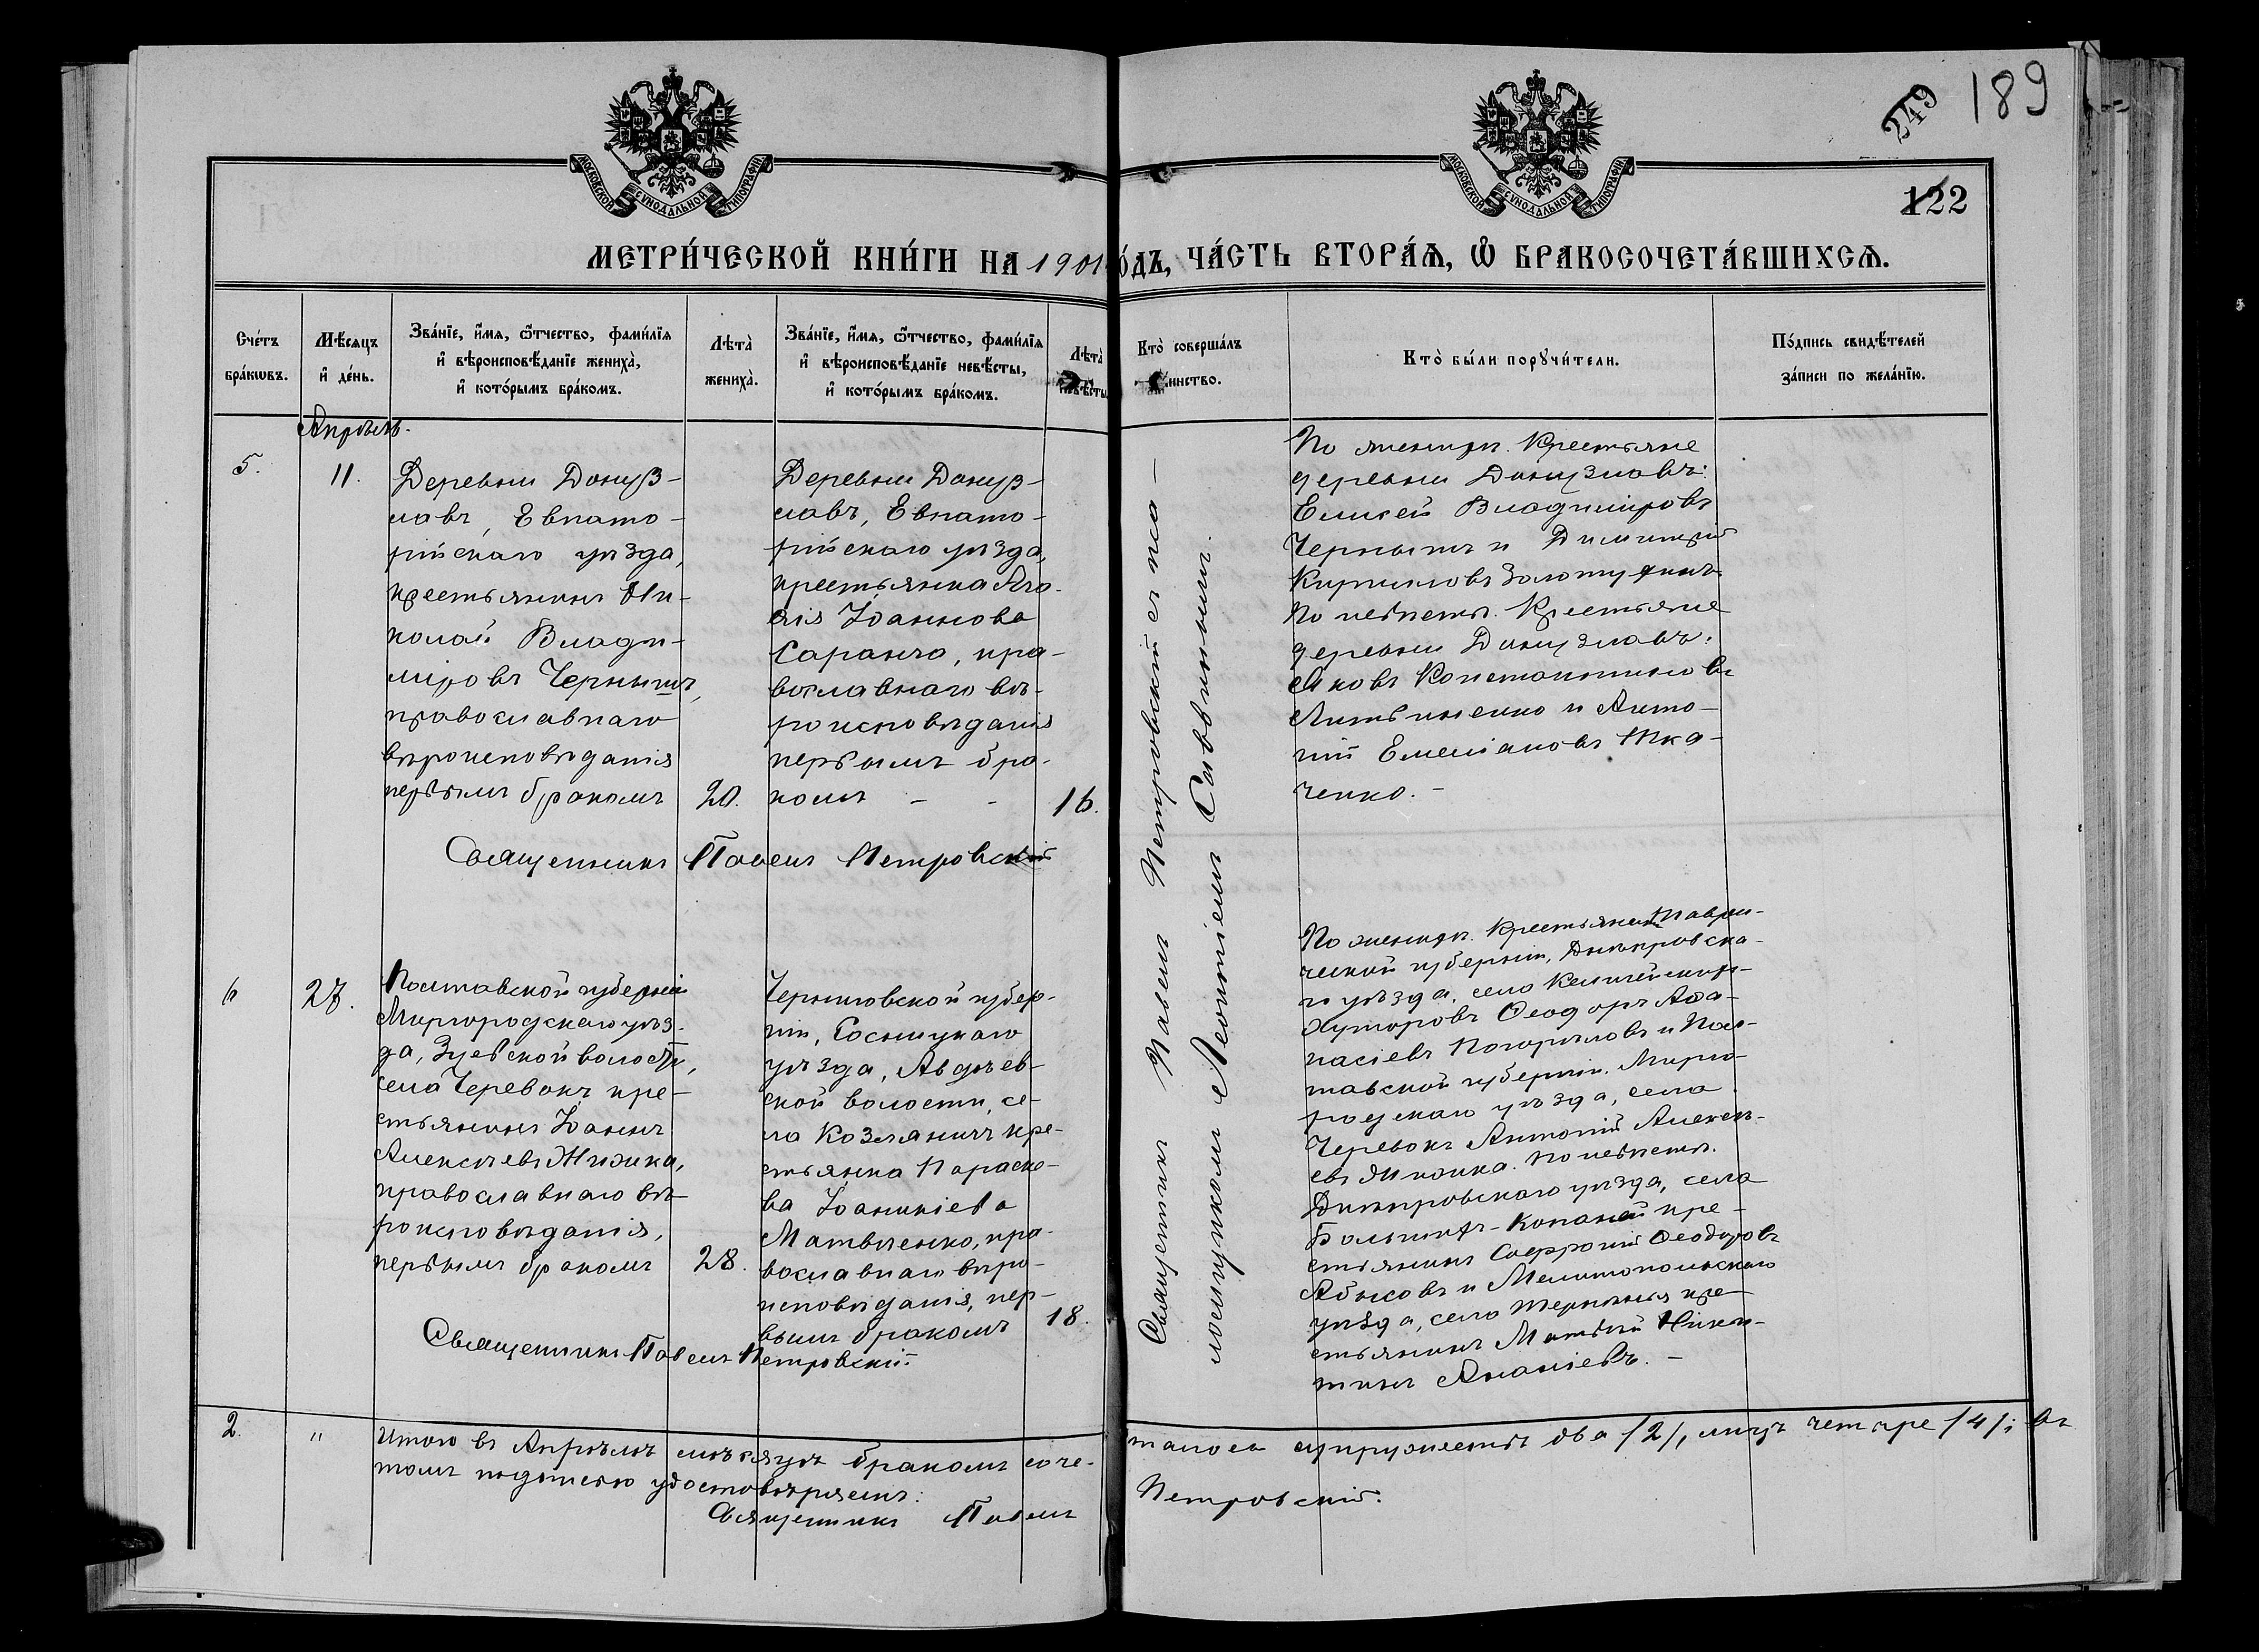 249
189
122
МОСКОВСКОЙ СѴНОДАЛЬНОЙ ТИПОГРАФІИ
МОСКОВСКОЙ СѴНОДАЛЬНОЙ ТИПОГРАФІИ
МЕТРИ́ЧЕСКОЙ КНИ́ГИ НА 1901 ГО́ДЪ, ЧА́СТЬ ВТОРА́Ѧ, Ѡ҆ БРАКОСОЧЕТА́ВШИХСѦ.
Сче́тъ бра́кѡвъ.
Мѣ́сяцъ и҆ де́нь.
Зва́нїе, и҆́мѧ, ѻ҆́тчество, фами́лїѧ
и҆ вѣроисповѣ́данїе жениха̀,
и҆ кото́рымъ бра́комъ.
Лѣта̀ жениха̀.
Зва́нїе, и҆́мѧ, ѻ҆́тчество, фами́лїѧ
и҆ вѣроисповѣ́данїе невѣ́сты,
и҆ кото́рымъ бра́комъ.
Лѣта̀ невѣ́сты
Кто̀ соверша́лъ
инство.
Кто̀ бы́ли порꙋчи́тели.
По́дпись свидѣ́телей
за́писи по жела́нїю.
Апрѣль.
5.
11.
Деревни Донуз-
лавъ, Евпато-
рійскаго уѣзда,
крестьянинъ Ни-
колай Влади-
міровъ Чернышъ,
православнаго
вѣроисповѣданія
первымъ бракомъ
20.
Деревни Донуз-
лавъ, Евпато-
рійскаго уѣзда,
крестьянка Ага-
ѳія Іоаннова
Саранча, пра-
вославнаго вѣ-
роисповѣданія
первымъ бра-
комъ - -
16.
Священникъ Павелъ Петровскій
Священникъ Павелъ Петровскій съ пса-
ломщикомъ Леонтіемъ Саввинымъ.
По женихѣ. Крестьяне
деревни Донузлавъ:
Елисей Владиміровъ
Чернышъ и Димитрій
Кирилловъ Золотухинъ
По невѣстѣ. Крестьяне
деревни Донузлавъ:
Яковъ Константиновъ
Литвиненко и Анто-
ній Емеліановъ Тка-
ченко. -
6
27.
Полтавской губерніи
Миргородскаго уѣз-
да, Зуевской волости,
села Черевокъ кре-
стьянинъ Іоаннъ
Алексѣевъ Жижка,
православнаго вѣ-
роисповѣданія,
первымъ бракомъ
28.
Черниговской губер-
ніи, Сосницкаго
уѣзда, Авдѣев-
ской волости, се-
ла Козляничъ кре-
стьянка Параске-
ва Іоанникіева
Матвѣенко, пра-
вославнаго вѣро-
исповѣданія, пер-
вымъ бракомъ
18.
Священникъ Павелъ Петровскій
По женихѣ. Крестьяне Таври-
ческой губерніи, Днѣпровска-
го уѣзда, села
Хуторовъ Ѳеодоръ Аѳа-
насіевъ Погорѣловъ и Пол-
тавской губерніи, Мирго-
родскаго уѣзда, села
Черевокъ Антоній Алексѣ-
евъ Жижка. По невѣстѣ.
Днѣпровскаго уѣзда, села
Большихъ-Копаней кре-
стьянинъ Софроній Ѳеодоровъ
и Мелитопольскаго
уѣзда, села Терпѣнья кре-
стьянинъ Матвѣй Ники-
тинъ Ананіевъ. -
2. "
Итого въ Апрѣлѣ мѣсяцѣ бракомъ соче-
талось супружествъ два /2/, лицъ четыре /4/; въ
томъ подписью удостовѣряемъ:
Священникъ Павелъ Петровскій.